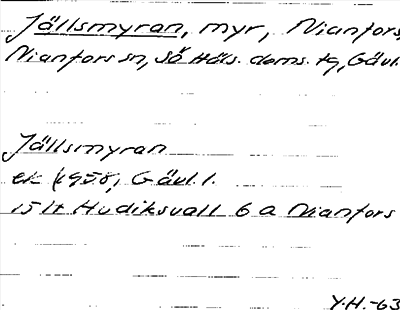 Jällsmyran, myr, Nianfors,
Nianfors sn, Sö Häls. doms. tg, Gävl.
Jällsmyran
ek 1958, Gävl. l.
15 H Hudiksvall 6 a Nianfors
Y.H.-63